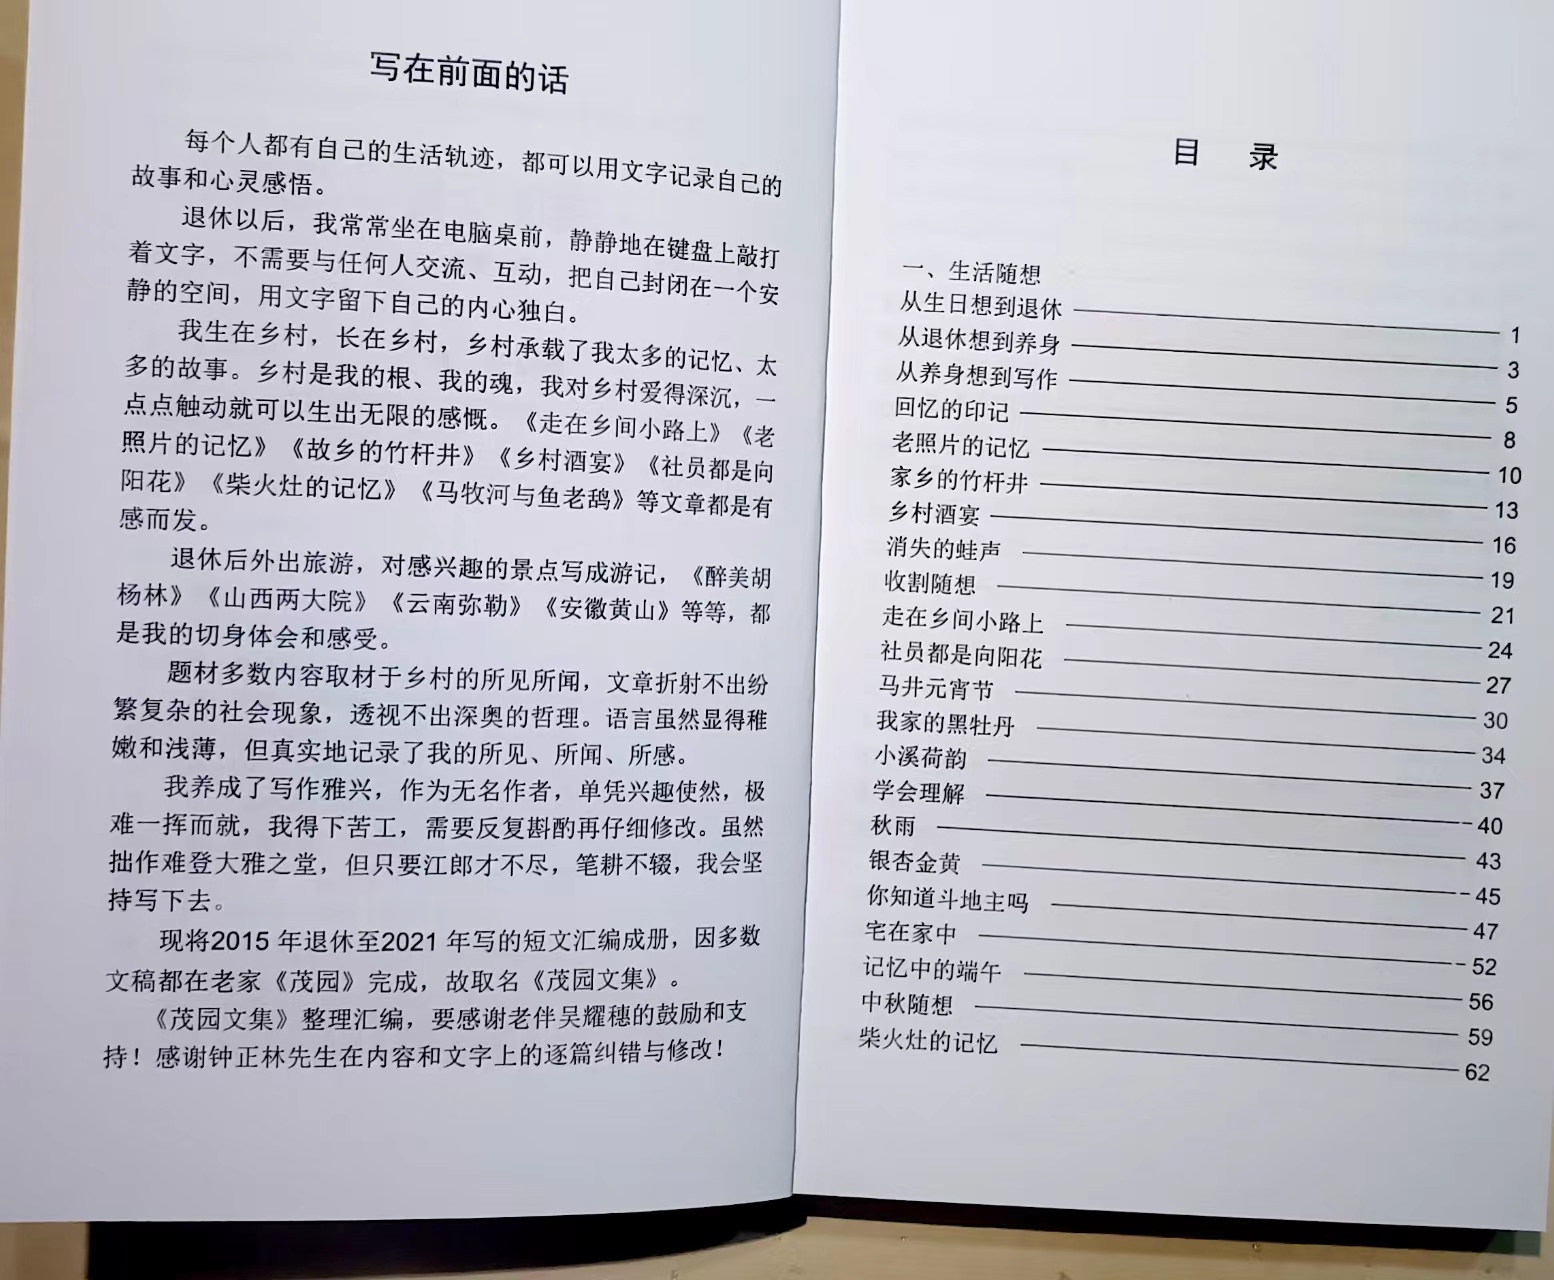 写在前面的话
每个人都有自己的生活轨迹，都可以用文字记录自己的
故事和心灵感悟。
退休以后，我常常坐在电脑桌前，静静地在键盘上敲打
着文字，不需要与任何人交流、互动，把自己封闭在一个安
静的空间，用文字留下自己的内心独白。
我生在乡村，长在乡村，乡村承载了我太多的记忆、太
多的故事。乡村是我的根、我的魂，我对乡村爱得深沉，一
点点触动就可以生出无限的感慨。《走在乡间小路上》《老
照片的记忆》《故乡的竹杆井》《乡村酒宴》《社员都是向
阳花》《柴火灶的记忆》《马牧河与鱼老鸹》等文章都是有
感而发。
退休后外出旅游，对感兴趣的景点写成游记，《醉美胡
杨林》《山西两大院》《云南弥勒》《安徽黄山》等等，都
是我的切身体会和感受。
题材多数内容取材于乡村的所见所闻，文章折射不出纷
繁复杂的社会现象，透视不出深奥的哲理。语言虽然显得稚
嫩和浅薄，但真实地记录了我的所见、所闻、所感。
我养成了写作雅兴，作为无名作者，单凭兴趣使然，极
难一挥而就，我得下苦工，需要反复斟酌再仔细修改。虽然
拙作难登大雅之堂，但只要江郎才不尽，笔耕不辍，我会坚
持写下去。
现将2015年退休至2021年写的短文汇编成册，因多数
文稿都在老家《茂园》完成，故取名《茂园文集》。
《茂园文集》整理汇编，要感谢老伴吴耀穗的鼓励和支
持！感谢钟正林先生在内容和文字上的逐篇纠错与修改！
目 录
一、生活随想
从生日想到退休 1
从退休想到养身 3
从养身想到写作 5
回忆的印记 8
老照片的记忆 10
家乡的竹杆井 13
乡村酒宴 16
消失的蛙声 19
收割随想 21
走在乡间小路上 24
社员都是向阳花 27
马井元宵节 30
我家的黑牡丹 34
小溪荷韵 37
学会理解 40
秋雨 43
银杏金黄 45
你知道斗地主吗 47
宅在家中 52
记忆中的端午 56
中秋随想 59
柴火灶的记忆 62